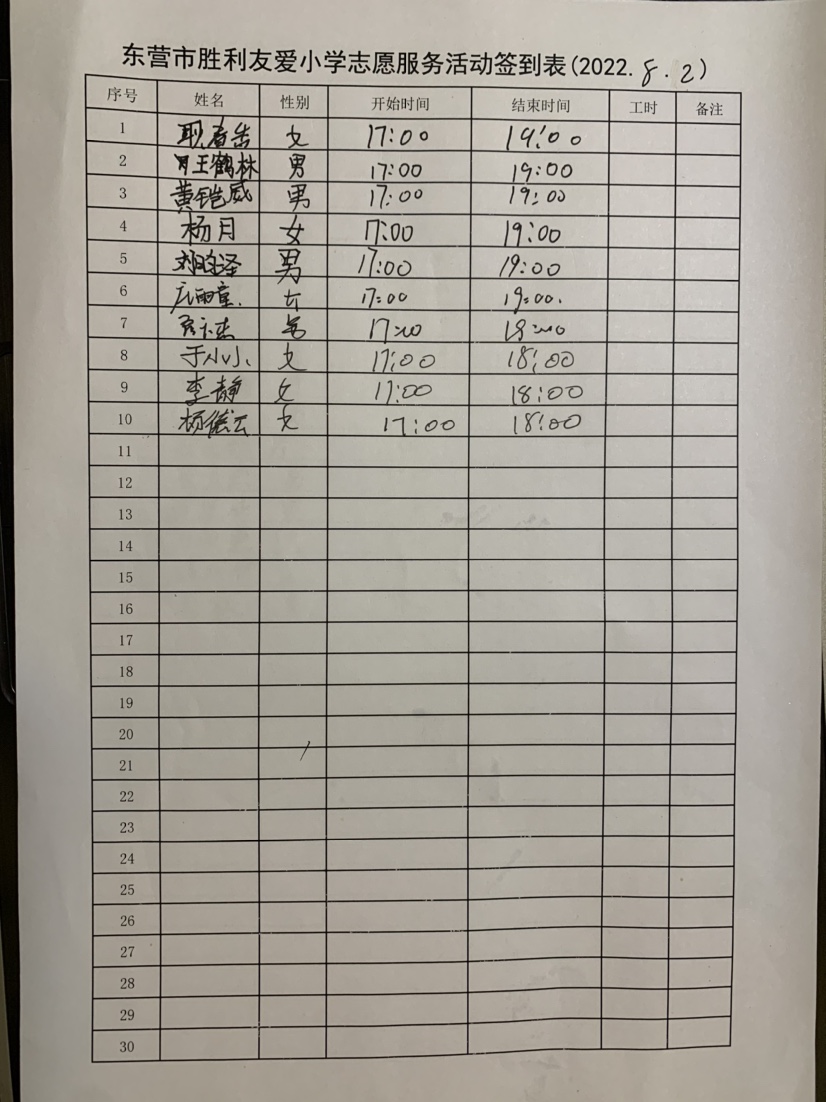 东营市胜利友爱小学志愿服务活动签到表(2022.8.2)
序号 姓名 性别 开始时间 结束时间 工时 备注
1 女 17:00 19:00
2 王鹤林 男 17:00 19:00
3 黄铠威 男 17:00 19:00
4 杨月 女 17:00 19:00
5 男 17:00 19:00
6 女 17:00 19:00.
7 男 17:00
8 于小小 女 17:00 18:00
9 李静 女 17:00 18:00
10 女 17:00 18:00
11
12
13
14
15
16
17
18
19
20
21
22
23
24
25
26
27
28
29
30